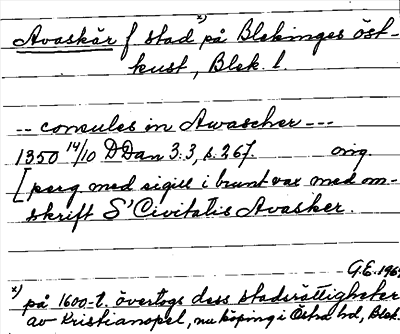 Avaskär f stad x) på Blekinges öst-
kust, Blek. l.
-- consules in Awascher ---
1350 14/10 DDan 3:3, s. 267. orig.
[perg med sigill i brunt vax med om-
skrift S' Civitatis Avasker.
G.E. 196
x) på 1600-t. övertogs dess stadsrättigheter
av Kristianopel, nu köping i Östra hd, Blek.